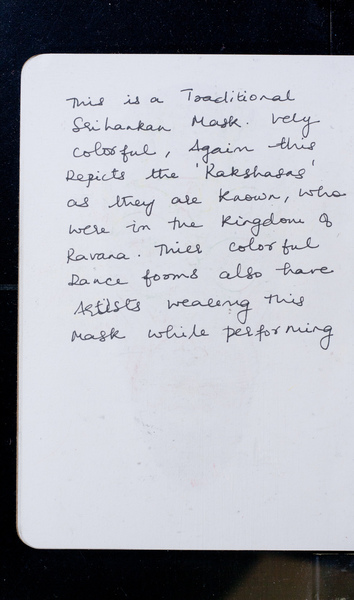 This is a Traditional
Srilankan Mask. Very
colorful, Again this
Depicts the 'Rakshasas'
as they are known, who
were in the Kingdom of
Ravana. Their colorful
Dance forms also have
Artists wearing this
Mask while performing